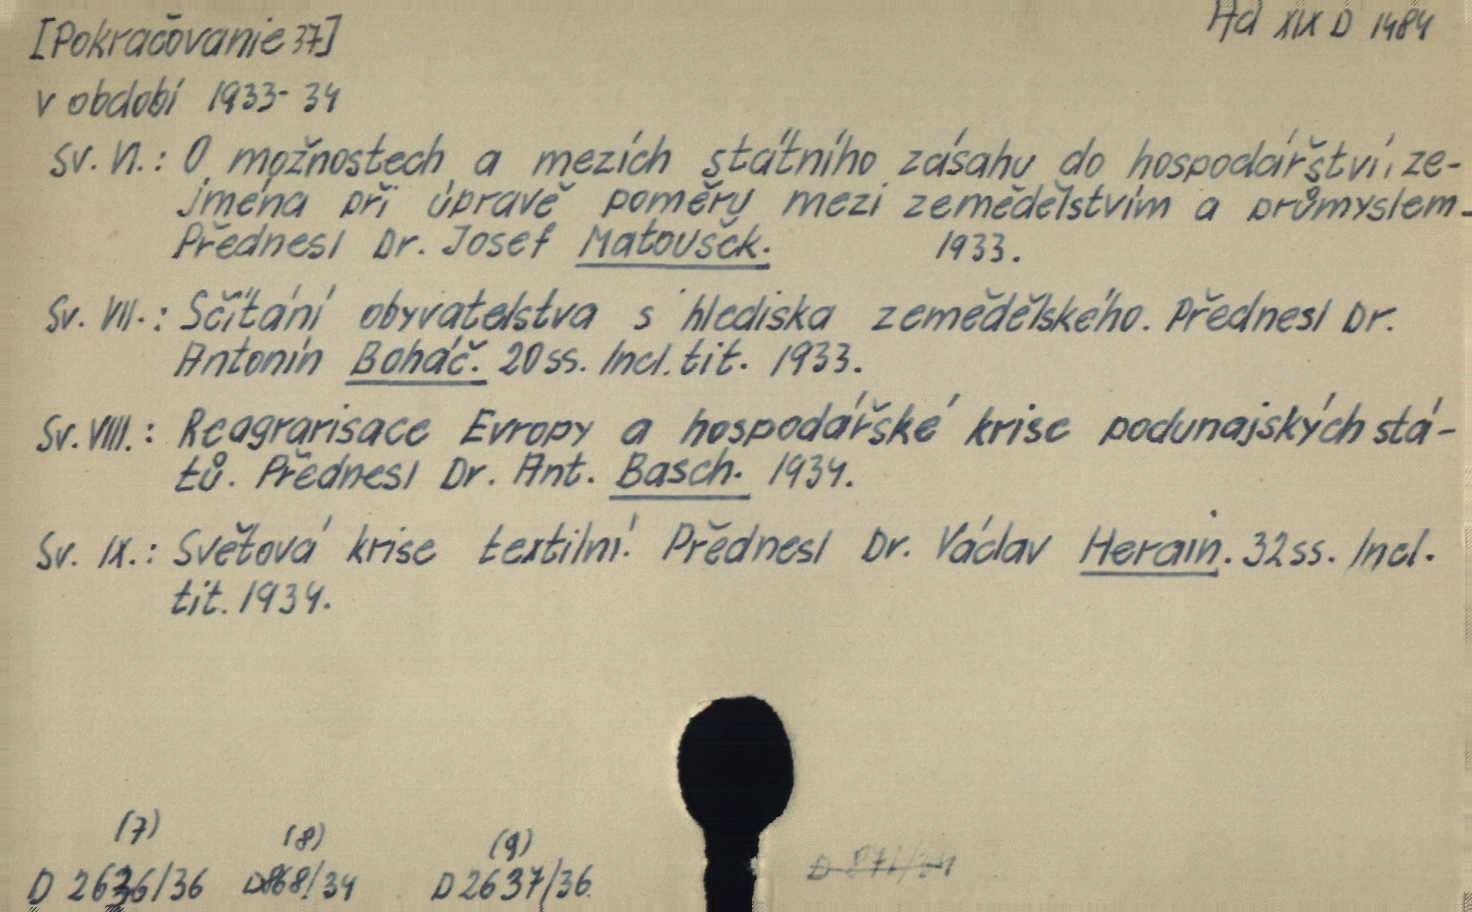 [Pokračovanie 37]
Ad XIX D 1484
v období 1933-34
Sv. VI.: O možnostech a mezích státního zásahu do hospodářství, ze-
jména při úpravě poměru mezi zemědělstvím a průmyslem.
Přednesl Dr. Josef Matoušek. 1933.
Sv. VII.: Sčítání obyvatelstva s hlediska zemědělského. Přednesl Dr.
Antonín Boháč. 20 ss. Incl. tit. 1933.
Sv. VIII.: Reagrarisace Evropy a hospodářské krise podunajských stá-
tů. Přednesl Dr. Ant. Basch. 1934.
Sv. IX.: Světová krise textilní. Přednesl Dr. Václav Herain. 32 ss. Incl.
tit. 1934.
(7) (8) (9)
D 2636/36 D868/34 D 2637/36